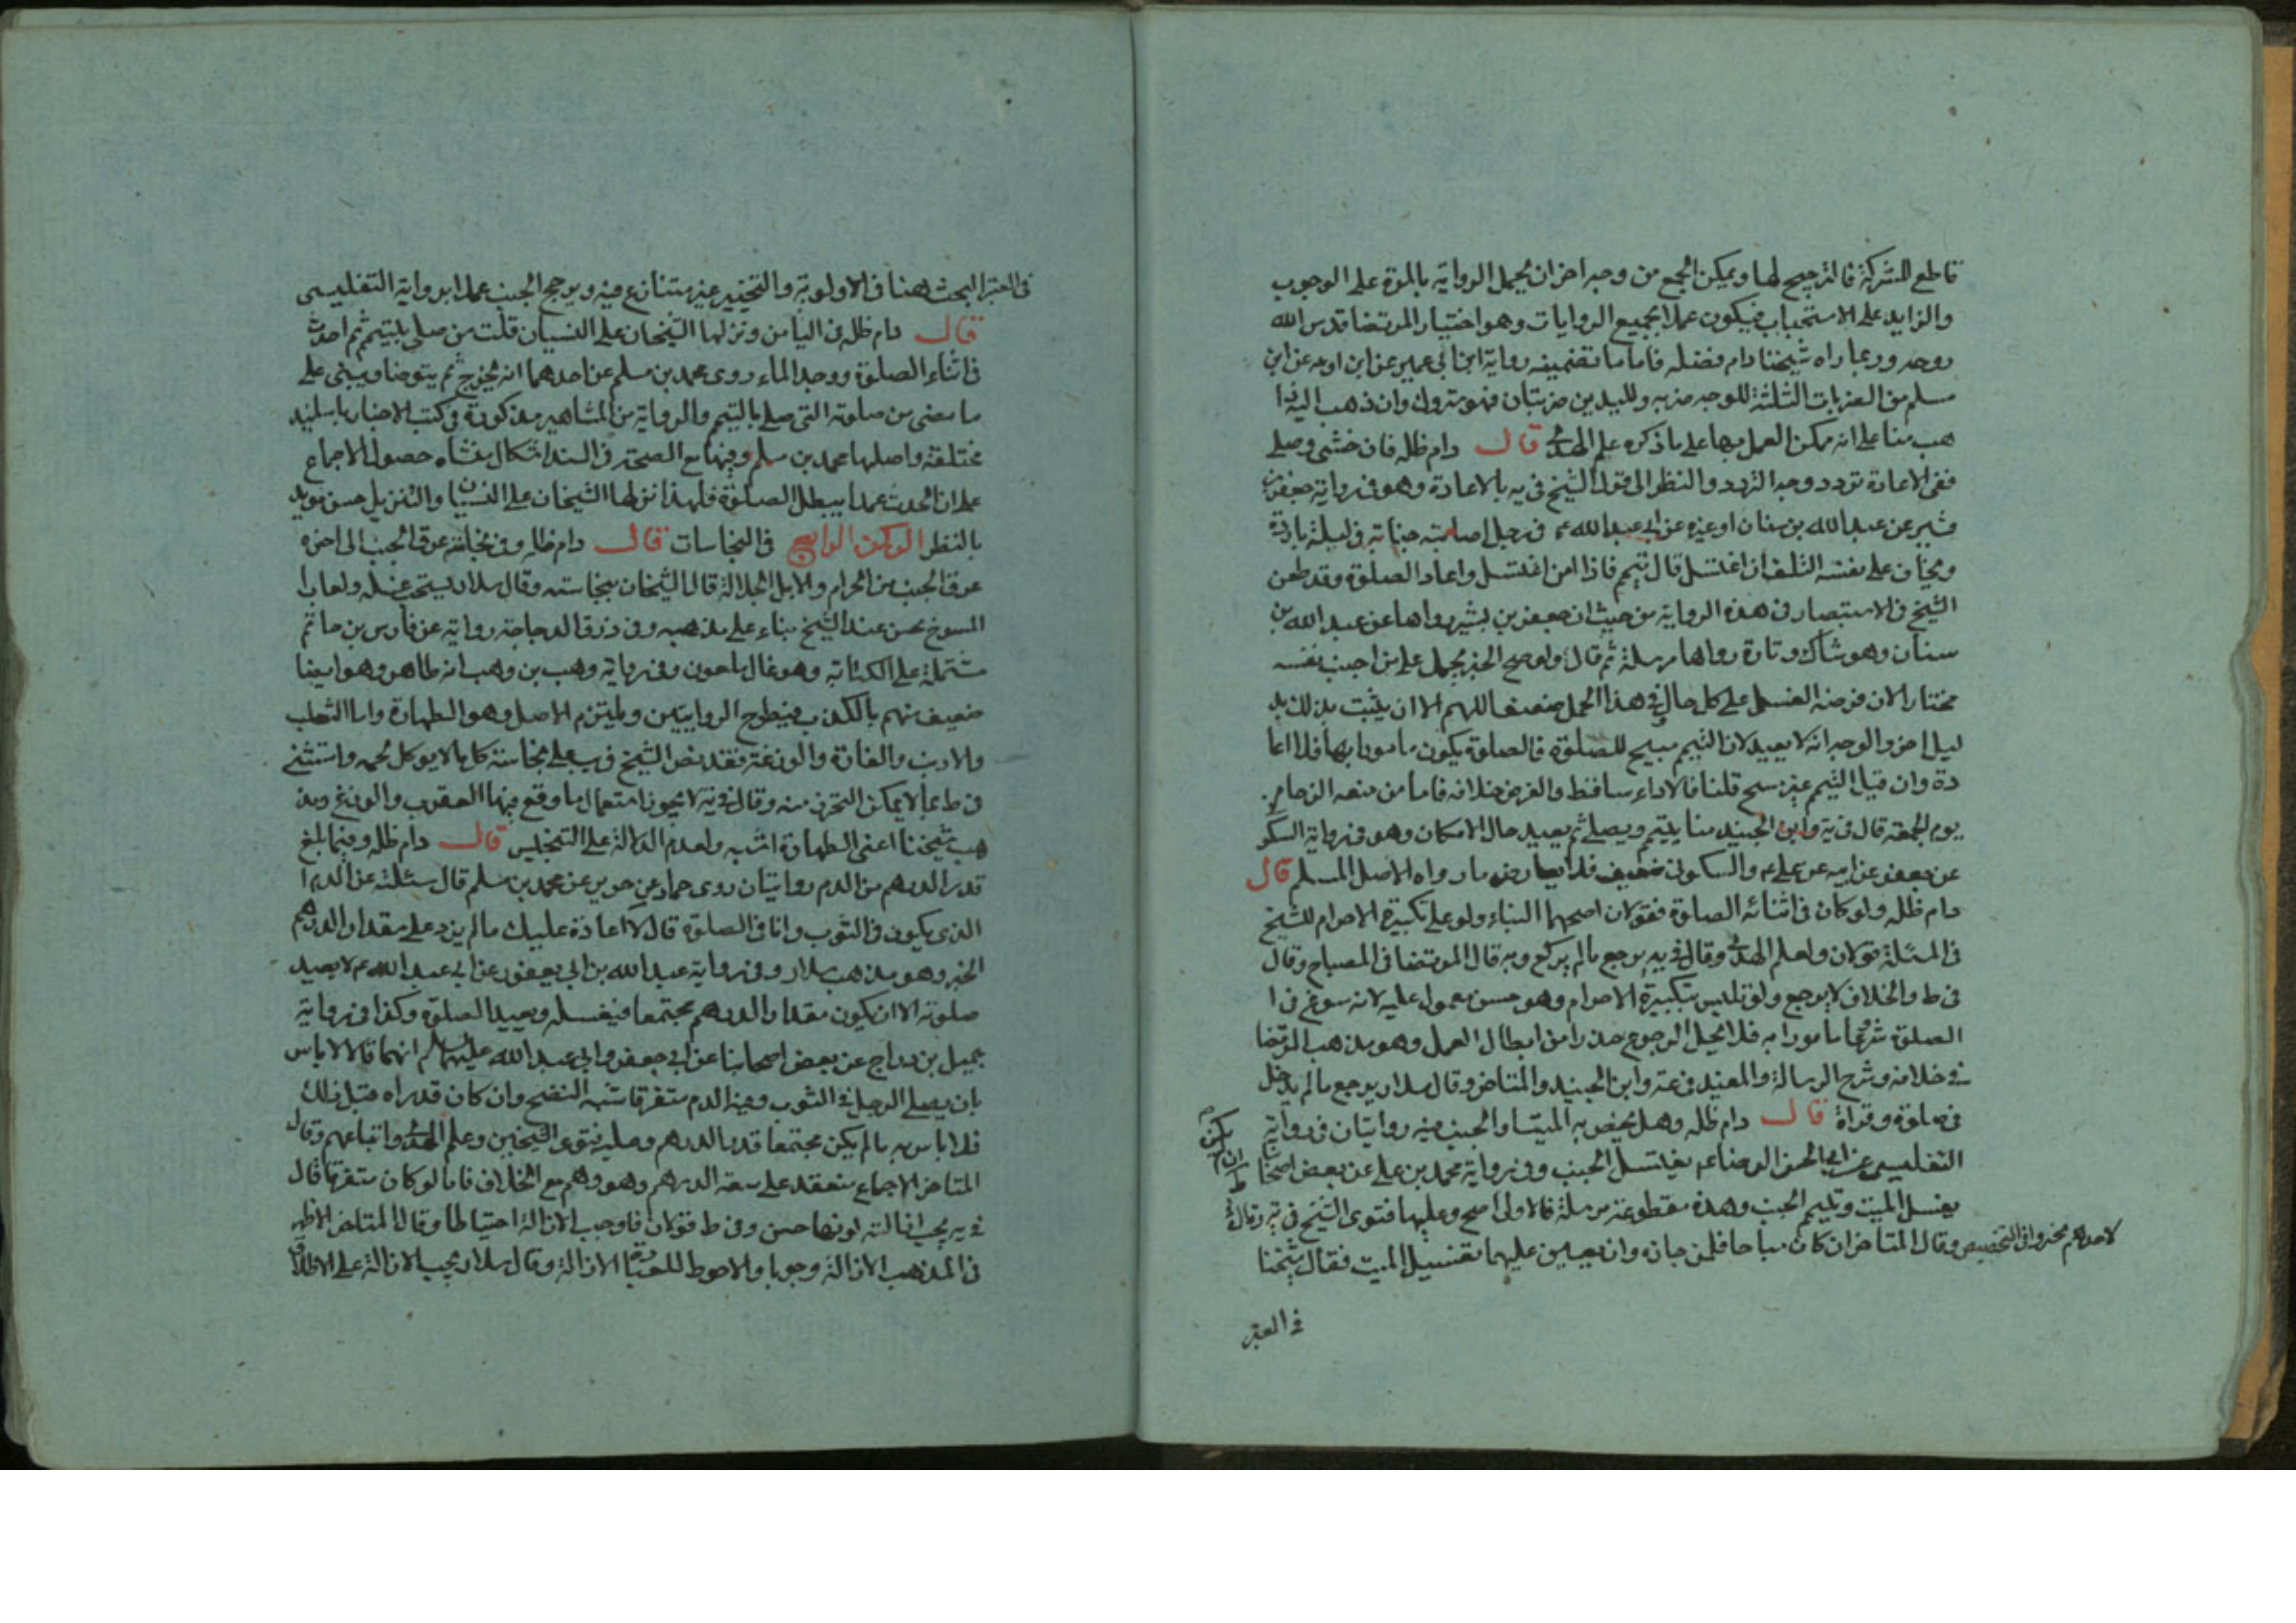 قاطع للشركة فالترجيح لها ويمكن الجمع من وجه اخر ان يحمل الرواية بالمرة على الوجوب
والزايد على الاستحباب فيكون عملا بجميع الروايات وهو اختيار المرتضا قدس الله
روحه وربما راه شيخنا دام فضله فاما ما تضمينه رواية ابن ابي عمير عن ابن اذينه عن ابن
مسلم من الضربات الثلثة للوجه ضربه ولليدين ضربتان فهو متروك وان ذهب اليه ذا
هب منا على انه يمكن العمل بها على ما ذكره علم الهدى قال دام ظله فان خشى وصلى
ففى الاعادة تردد وجه التردد والنظر الى قول الشيخ فى يه بالاعادة وهو فى رواية جعفر بن
بشير عن عبد الله بن سنان او غيره عن ابى عبد الله ع فى رجل اصابته جنابة فى ليلة باردة
ويخاف على نفسه التلف ان اغتسل قال تيمم فاذا امن اغتسل واعاد الصلوة وقد طعن
الشيخ فى الاستبصار فى هذه الرواية من حيث ان جعفر بن بشير رواها عن عبد الله بن
سنان وهو شاك وتارة رواها مرسلة ثم قال ولو صح الخبر يحمل على من اجنب نفسه
مختارا لان فرضه الغسل على كل حال وفى هذا الحمل ضعف اللهم الا ان يثبت بذلك بد
ليل اخر والوجه انه لا يعيد لان التيمم مبيح للصلوة فالصلوة يكون مامورا بها فلا اعا
دة وان قيل التيمم غير مبيح قلنا فالاداء ساقط والفرض خلافه فاما من منعه الزحام
يوم الجمعة قال فى ية وابن الجنيد منا يتيمم ويصلى ثم يعيد حال الامكان وهو فى رواية السكو
عن جعفر عن ابيه عن على ع والسكونى ضعيف فلا يعارض ما رواه الاصل المسلم قال
دام ظله ولو كان فى اثنائه الصلوة فقولان اصحهما البناء ولو على تكبيرة الاحرام للشيخ
فى المسئلة قولان ولعلم الهدى وقال فى يه يرجع ما لم يركع وبه قال المرتضا فى المصباح وقال
فى ط والخلاف لا يرجع ولو تلبس بتكبيرة الاحرام وهو حسن معمول عليه لانه سوغ فى ا
الصلوة شرعا مامورا به فلا يحل الرجوع حذرا من ابطال العمل وهو مذهب المرتضا
فى خلافه وشرح الرسالة والمفيد فى عته وابن الجنيد والمتاخر وقال سلار يرجع ما لم يدخل
فى صلوة وقراة قال دام ظله وهل يخص به الميت او الجنب فيه روايتان فى رواية
التفليسى عن ابى الحسن الرضا ع يغتسل الجنب وفى رواية محمد بن على عن بعض اصحابنا
يغسل الميت ويتيمم الجنب وهذه مقطوعة مرسلة فالاولى اصح وعليها فتوى الشيخ فى يه وقال فى
ط ان لم يكن
لاحدهم تخيروا فى التخصيص وقال المتاخر ان كان مباحا فلمن حازه وان تعين عليهما تغسيل الميت فقال شيخنا
فى المعتبر
فى المعتبر البحث هنا فى الاولوية والتخيير غير متنازع فيه ويرجح الجنب عملا برواية التفليسى
قال دام ظله فى الثامن ونزلها الشيخان على النسيان قلت من صلى بتيمم ثم احدث
فى اثناء الصلوة ووجد الماء روى محمد بن مسلم عن احدهما انه يخرج ثم يتوضا ويبنى على
ما مضى من صلوته التى صلى بالتيمم والرواية من المشاهير مذكورة فى كتب الاخبار باسانيد
مختلفة واصلها محمد بن مسلم وفيها مع الصحة فى السند اشكال منشاه حصول الاجماع
على ان الحدث عمدا يبطل الصلوة فلهذا نزلها الشيخان على النسيان والتنزيل حسن مويد
بالنظر الركن الرابع فى النجاسات قال دام ظله وفى نجاسة عرق الجنب الى اخره
عرق الجنب من الحرام والابل الجلالة قالا الشيخان بنجاسته وقال سلار يستحب غسله ولعاب ا
المسوخ نجس عند الشيخ بناء على مذهبه وفى ذرق الدجاجة رواية عن فارس بن حاتم
مشتملة على الكتابة وهو غال ملعون وفى رواية وهب بن وهب انه طاهر وهو ايضا
ضعيف متهم بالكذب فيطرح الروايتين ويلتزم الاصل وهو الطهارة واما الثعلب
والارنب والفارة والوزغة فقد نص الشيخ فى يب على نجاسة كل ما لا يوكل لحمه واستثنى
فى ط بما لا يمكن التحرز منه وقال فى يه لا يجوز استعمال ما وقع فيها العقرب والوزغ ومذ
هب شيخنا اعنى الطهارة اشبه ولعدم الدلالة على التنجيس قال دام ظله وفيما بلغ
قدر الدرهم من الدم روايتان روى حماد عن حريز عن محمد بن مسلم قال سئلته عن الدم ا
الذى يكون فى الثوب وانا فى الصلوة قال لا اعادة عليك ما لم يزد على مقدار الدرهم
الخبر وهو مذهب سلار وفى رواية عبد الله بن ابى يعفور عن ابى عبد الله ع لا يعيد
صلوته الا ان يكون مقدار الدرهم مجتمعا فيغسله ويعيد الصلوة وكذا فى رواية
جميل بن دراج عن بعض اصحابنا عن ابى جعفر وابى عبد الله عليهما السلام انهما قالا لا باس
بان يصلى الرجل فى الثوب وفيه الدم متفرقا شبه النضح وان كان قد راه قبل ذلك
فلا باس به ما لم يكن مجتمعا قدر الدرهم وعليه فتوى الشيخين وعلم الهدى واتباعهم وقال
المتاخر الاجماع منعقد على سعة الدرهم وهو وهم مع الخلاف فاما لو كان متفرقا قال
فى يه يجب ازالته لو تفاحش وفى ط قولان فاوجب الازالة احتياطا وقال المتاخر الاظهر
فى المذهب الازالة وجوبا والاحوط للعبادة الازالة وقال سلار يجب الازالة على الاطلاق